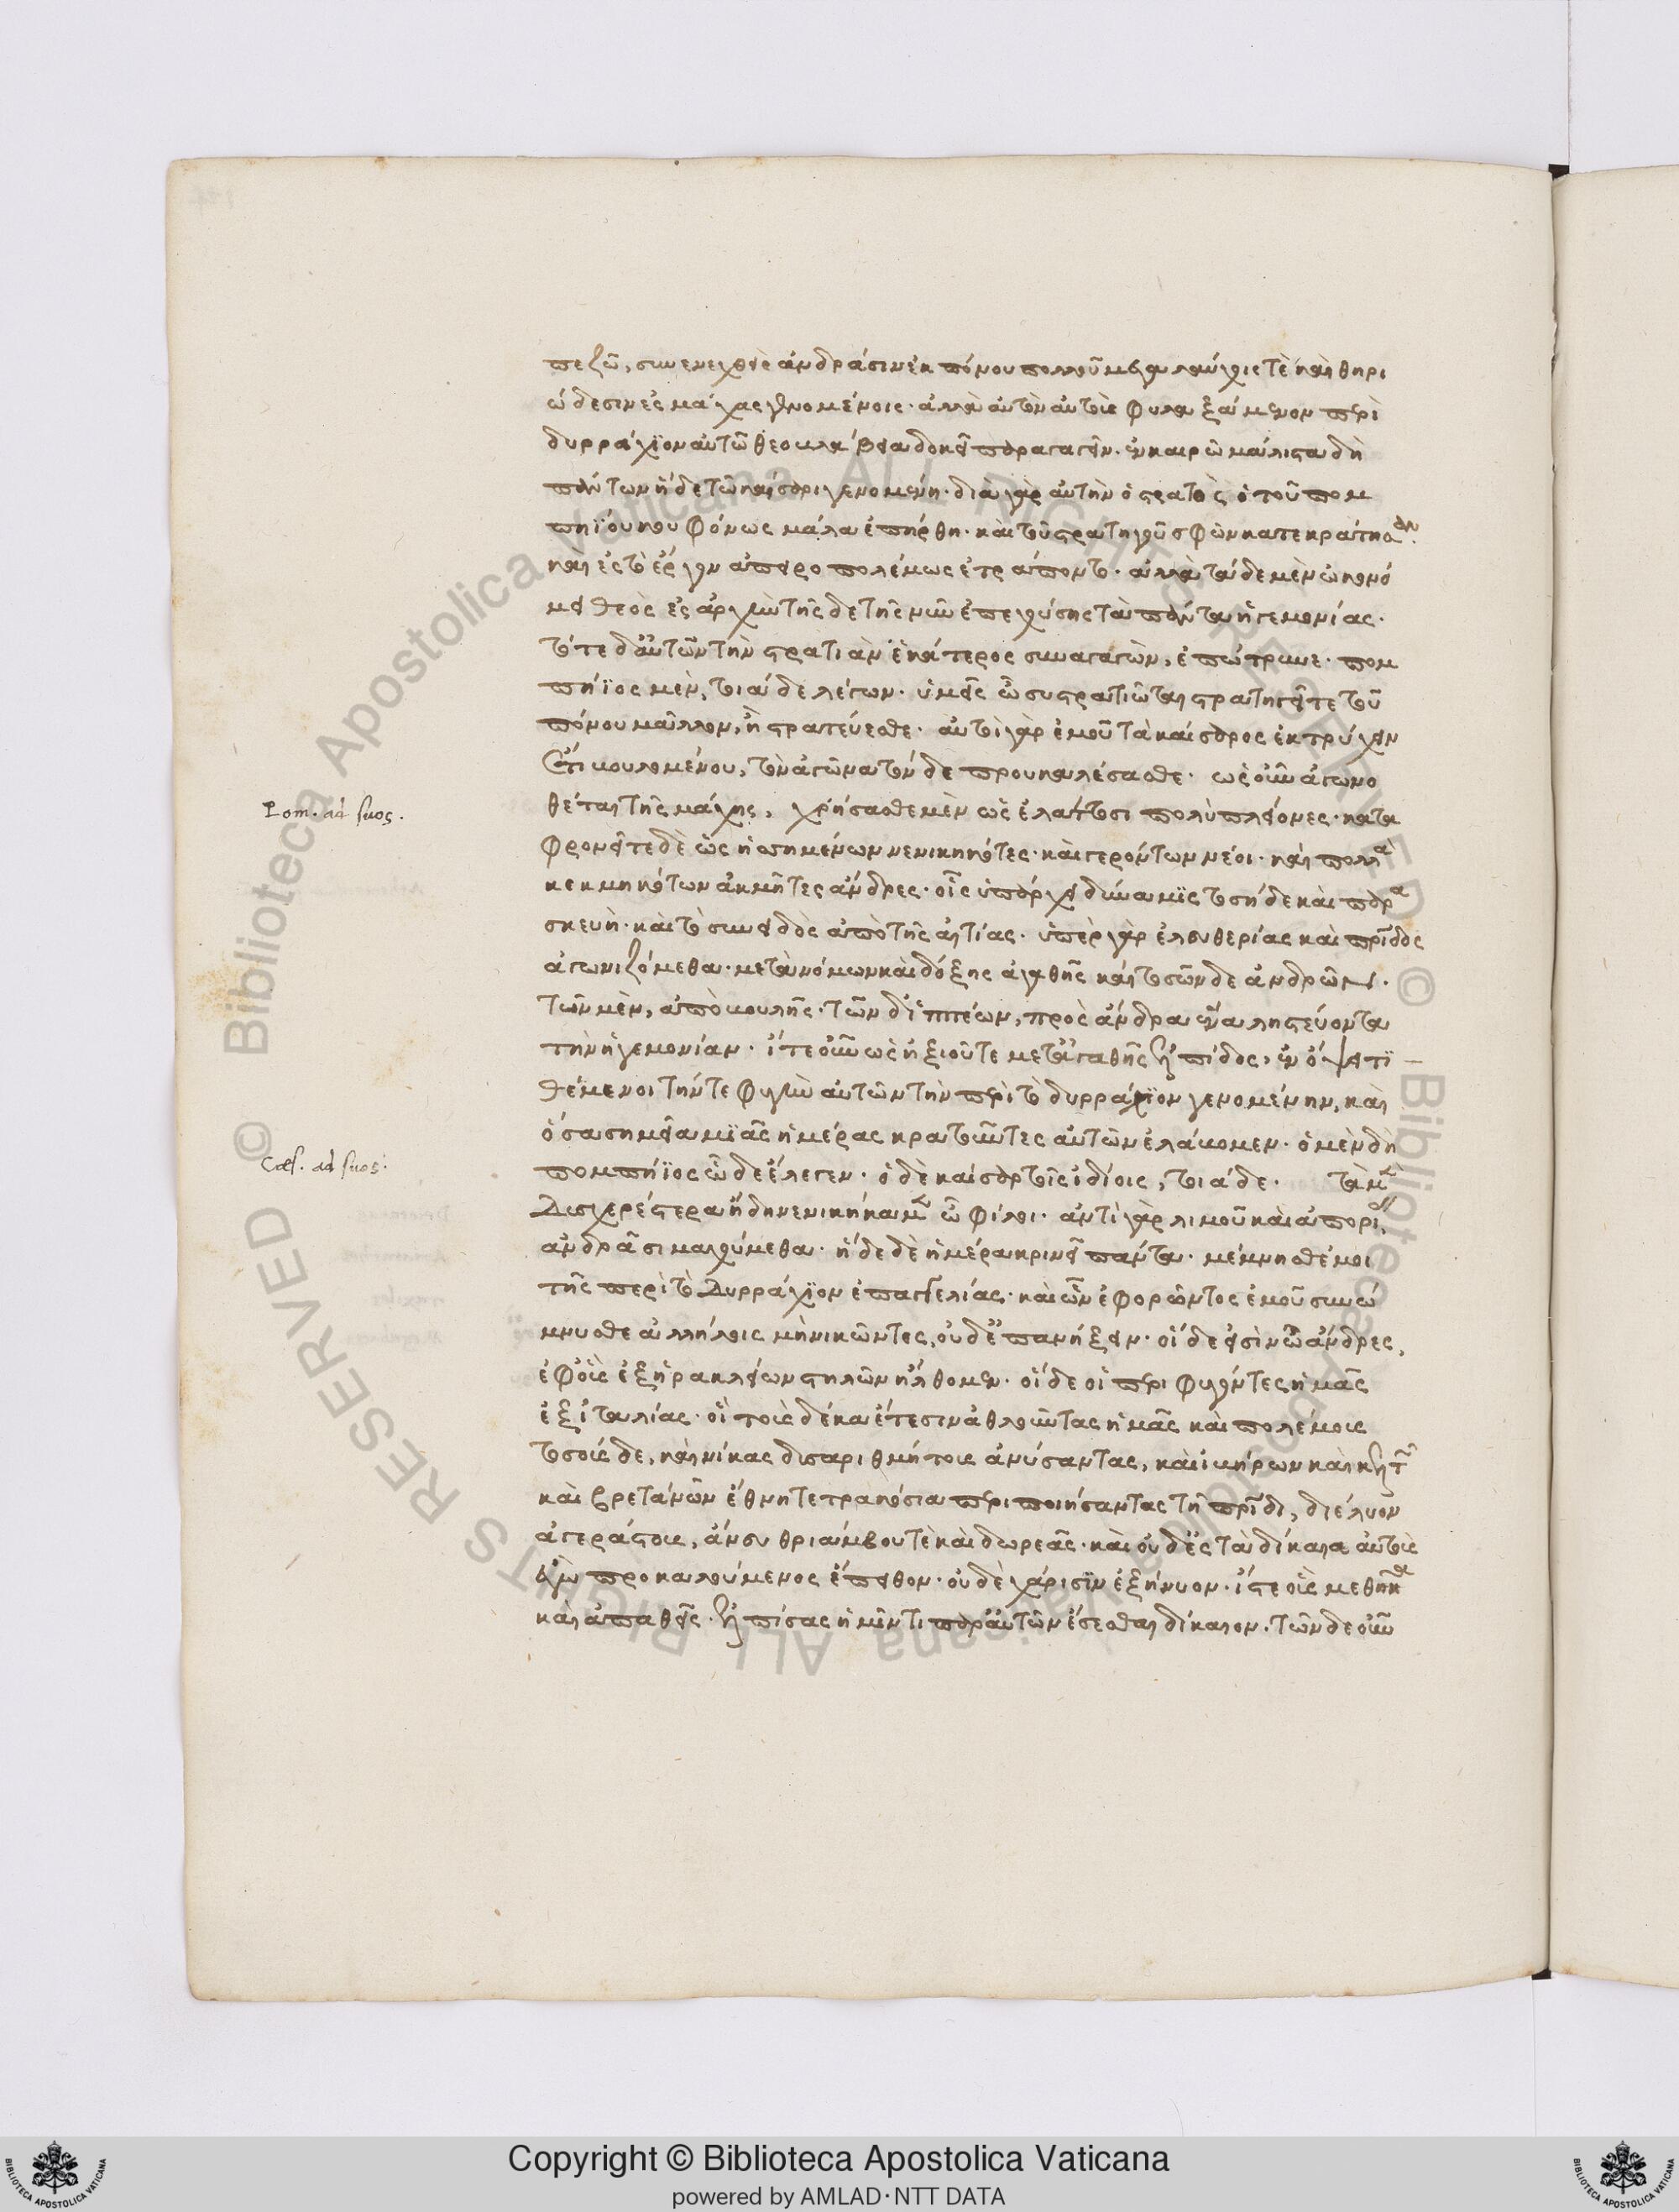 πεζῶ, συνενεχθεὶς ἀνδράσιν ἐκ πόνου πολλοῦ μεγαλαύχοις τὲ καὶ θηρι
ώδεσιν ἐς μάχας γενομένοις· ἀλλὰ αὐτὸν αὐτοὺς φυλαξάμενον περὶ
δυρράχϊον αὐτῶ θεοβλάβεια δοκεῖ παραγαγεῖν. ἐν καιρῶ μάλιστα δὴ
πάντων ἥδε τῶ καίσαρι γενομένη· διὰ γὰρ αὐτὴν ὁ στρατὸς ὁ τοῦ πομ
πηΐου κουφόνως μάλα ἐπήρθη· καὶ τοῦ στρατηγοῦ σφῶν κατεκράτησαν.
καὶ ἐς τὸ ἔργον ἀπειροπολέμως ἐτράποντο. ἀλλὰ τάδε μὲν ὠκονό
μει θεὸς ἐς ἀρχὴν τῆσδε τῆς νῦν ἐπεχούσης τὰ πάντα ἡγεμονίας.
τότε δ' αὐτῶν τὴν στρατιὰν ἑκάτερος συναγαγὼν, ἐπώτρυνε· πομ
πήϊος μὲν, τοιάδε λέγων· ὑμεῖς ὦ συστρατιῶται στρατηγεῖτε τοῦ
πόνου μᾶλλον, ἢ στρατεύεσθε· αὐτοὶ γὰρ ἐμοῦ τὰ καίσαρος ἐκτρύχειν
ἔτι βουλομένου, τὸν ἀγῶνα τόνδε προυκαλέσασθε· ὡς οὖν ἀγωνο
θέται τῆς μάχης, χρήσασθε μὲν ὡς ἐλάττοσι πολὺ πλείονες· κατα
φρονεῖτε δὲ ὡς ἡσσημένων νενικηκότες· καὶ γερόντων νέοι· καὶ πολλὰ
κεκμηκότων ἀκμῆτες ἄνδρες· οἷς ὑπάρχει δύναμϊς τοσήδε καὶ παρα
σκευή· καὶ τὸ συνειδὸς ἀπὸ τῆς αἰτίας· ὑπὲρ γὰρ ἐλευθερίας καὶ πρίδος
ἀγωνιζόμεθα· μετὰ νόμων καὶ δόξης ἀγαθῆς καὶ τοσῶνδε ἀνδρῶν.
τῶν μὲν, ἀπὸ βουλῆς· τῶν δ' ἱππέων, πρὸς ἄνδρα ἕνα ληστεύοντα
τὴν ἡγεμονίαν· ἴτε οὖν ὡς ἠξιοῦτε μετ' ἀγαθῆς ἐλπίδος, ἐν ὄψει τϊ
θέμενοι τήν τε φυγὴν αὐτῶν τὴν περὶ τὸ δυρράχϊον γενομένην, καὶ
ὅσα σημεῖα μϊᾶς ἡμέρας κρατοῦντες αὐτῶν ἐλάβομεν· ὁ μὲν δὴ
πομπήϊος ὧδε ἔλεγεν· ὁ δὲ καίσαρ τοῖς ἰδίοις, τοιάδε· τὰ μὲν
Δυσχερέστερα ἤδη νενικήκαμεν ὦ φίλοι· ἀντὶ γὰρ λιμοῦ καὶ ἀπορίας
ἀνδράσι μαχούμεθα· ἥδε δὲ ἡμέρα κρινεῖ πάντα· μέμνησθέ μοι
τῆς περὶ τὸ Δυρράχϊον ἐπαγγελίας· καὶ ὧν ἐφορῶντος ἐμοῦ συνώ
μνυσθε ἀλλήλοις μὴ νικῶντες, οὐδ' ἐπανήξειν· οἵδε εἰσὶν ὦ ἄνδρες,
ἐφ' οὓς ἐξ ἡρακλείων στηλῶν ἤλθομεν· οἵδε οἱ περιφυγόντες ἡμᾶς
ἐξ ἰταλίας· οἳ τοὺς δέκα ἔτεσιν ἀθλοῦντας ἡμᾶς καὶ πολέμους
τοσούσδε, καὶ νίκας δυσαριθμήτους ἀνύσαντας, καὶ ἰβήρων καὶ κελτῶν
καὶ βρετανῶν ἔθνη τετρακόσια περιποιήσαντας τῇ πρίδι, διέλυον
ἀγεράστους, ἄνευ θριάμβου τὲ καὶ δωρεᾶς· καὶ οὐδ' ἐς τὰ δίκαια αὐτοὺς
ἐγὼ προκαλούμενος ἔπειθον· οὐδὲ χάρισϊν ἐξήνυον· ἴστε οὓς μεθῆκα
καὶ ἀπαθεῖς· ἐλπίσας ἡμῖν τι παρ' αὐτῶν ἔσεσθαι δίκαιον· τῶνδε οὖν
Pom. ad suos.
Cæs. ad suos.
© Biblioteca Apostolica Vaticana ALL RIGHTS RESERVED
Copyright © Biblioteca Apostolica Vaticana
powered by AMLAD·NTT DATA
BIBLIOTECA APOSTOLICA VATICANA
BIBLIOTECA APOSTOLICA VATICANA